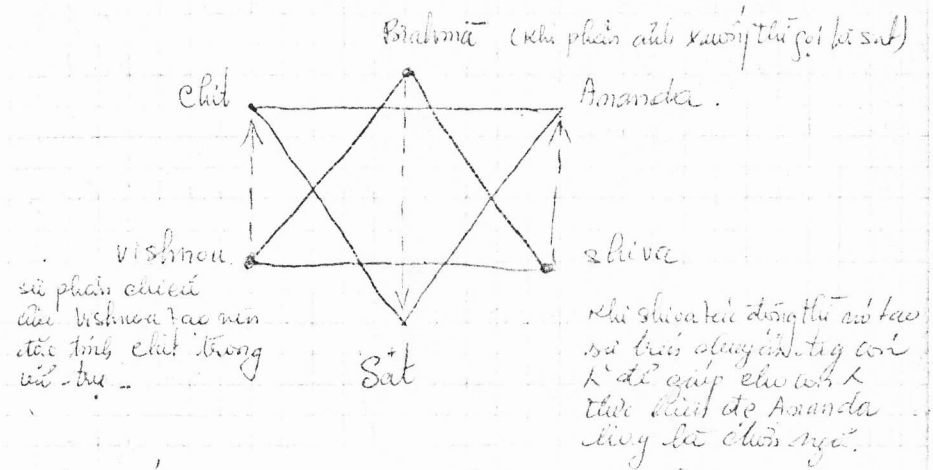 Brahmā (khi phản ảnh xuống thì gọi là sat)
Chit
Ananda.
vishnou
shiva
sự phản chiếu
của Vishnou tạo nên
đặc tính chit trong
vũ-trụ..
Sat
khi shiva tác động thì nó tạo
sự con
để giúp cho con
thực hiện Ananda
hay là chơn ngã.